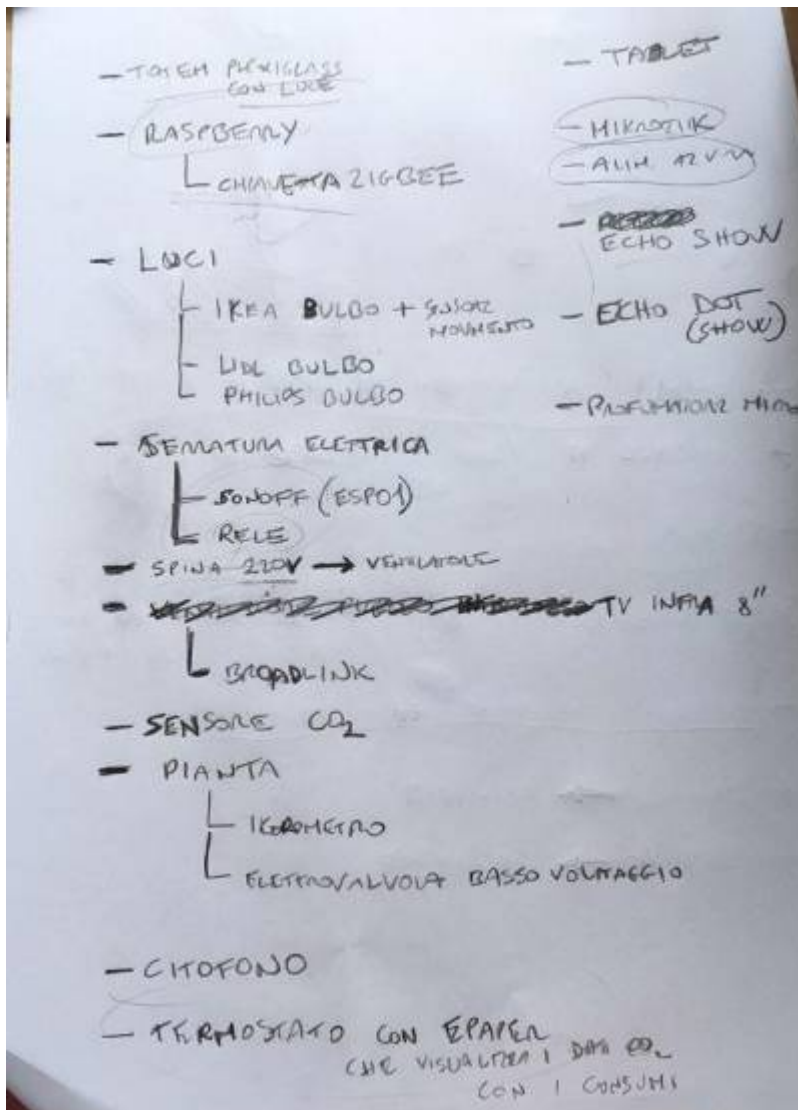 - TOTEM PLEXIGLASS
CON LUCE
- RASPBERRY
CHIAVETTA ZIGBEE
- LUCI
- IKEA BULBO + SENSORE
MOVIMENTO
- LIDL BULBO
PHILIPS BULBO
- SERRATURA ELETTRICA
- SONOFF (ESP01)
RELE
- SPINA 220V → VENTILATORE
- TV INFRA 8"
BROADLINK
- SENSORE CO2
- PIANTA
IGROMETRO
ELETTROVALVOLA BASSO VOLTAGGIO
- CITOFONO
- TERMOSTATO CON EPAPER
CHE VISUALIZZA I DATI CO2
CON I CONSUMI
- TABLET
- MIKROTIK
- ALIM 12V
- ECHO SHOW
- ECHO DOT
(SHOW)
- PROFUMATORE